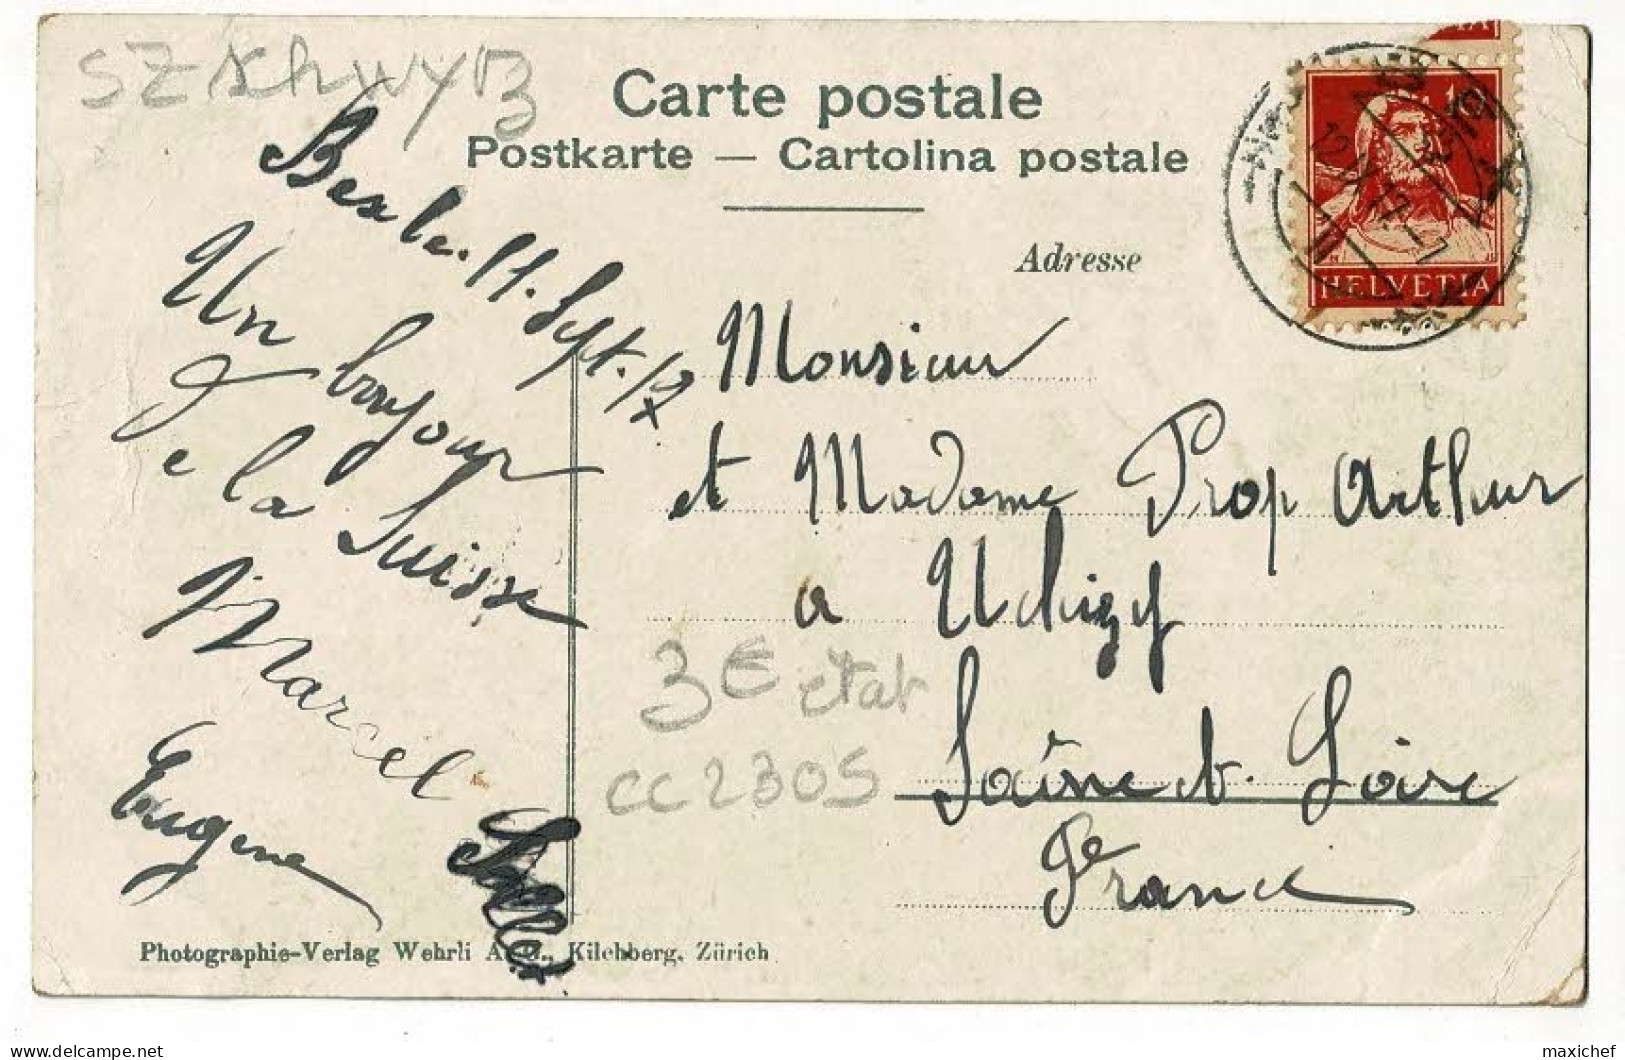 SZ Schwyz
Carte postale
Postkarte — Cartolina postale
Adresse
HELVETIA
Basle. 11. Sept.
Un bonjour
de la Suisse
Marcel
Eugene
Monsieur
et Madame Prop Arthur
a Uchizy
Saône-et-Loire
France
3E etat
CC 230S
Photographie-Verlag Wehrli A.-G., Kilchberg, Zürich
maxichef
delcampe.net